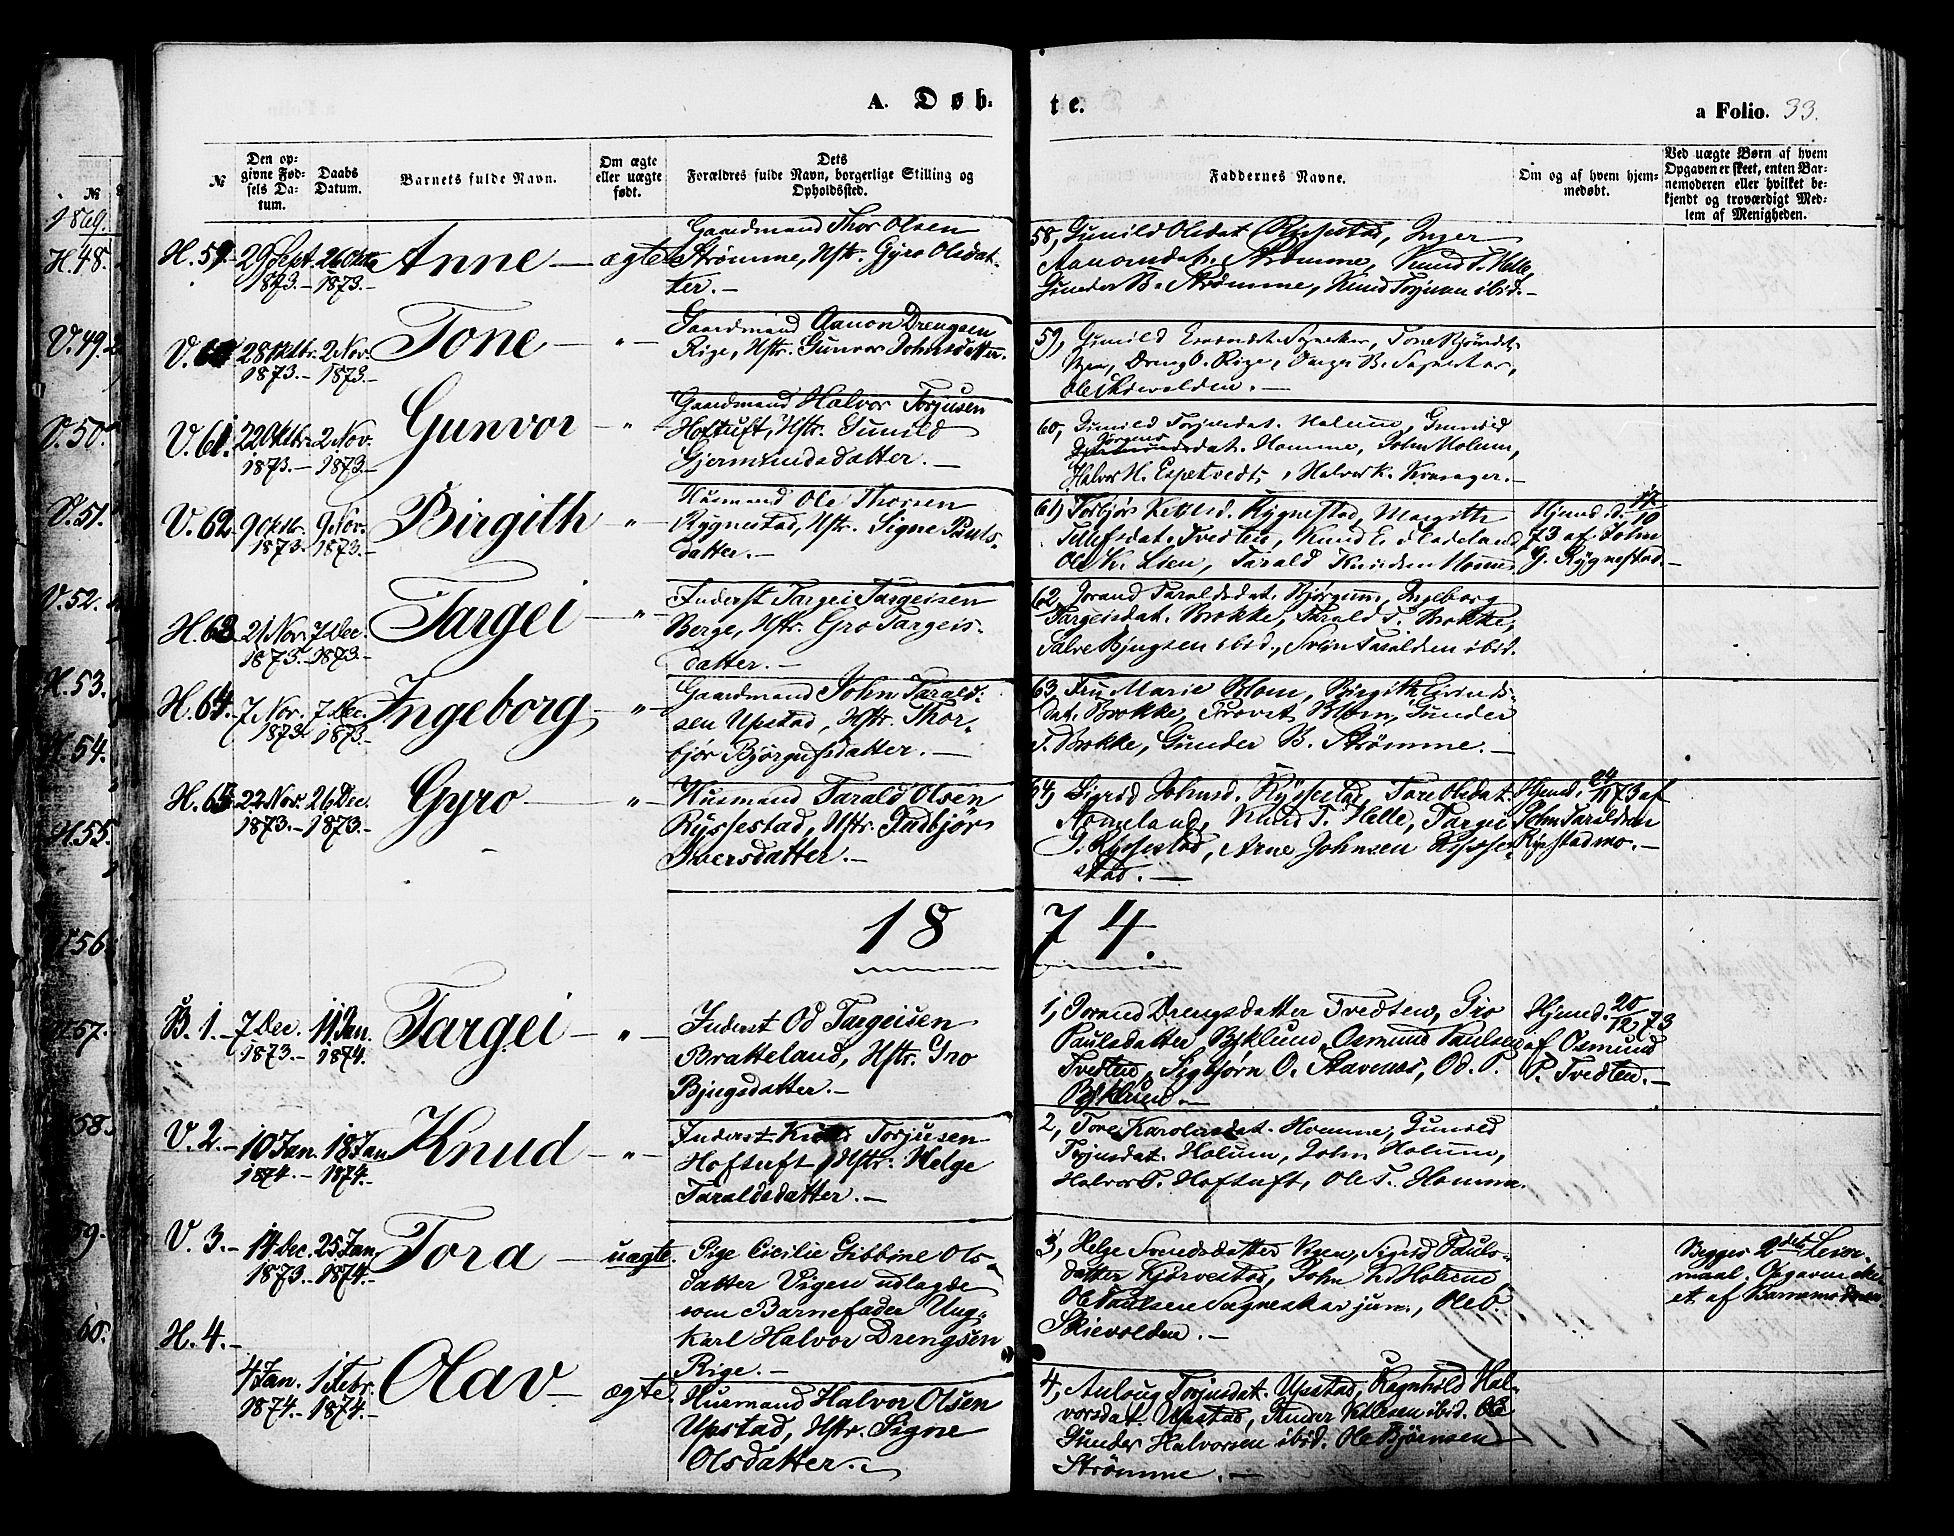 A. Døb-
te.
a Folio. 33.
№
Den op-
givne Fød-
sels Da-
tum.
Daabs
Datum.
Barnets fulde Navn.
Om ægte
eller uægte
født.
Dets
Forældres fulde Navn, borgerlige Stilling og
Opholdssted.
Faddernes Navne.
Om og af hvem hjem-
medøbt.
Ved uægte Børn af hvem
Opgaven er skeet, enten Bar-
nemoderen eller hvilket be-
kjendt og troværdigt Med-
lem af Menigheden.
№
1869.
H. 48.
V. 49.
V. 50.
V. 51.
V. 52.
H. 53.
H. 54.
H. 55.
56.
57.
58.
59.
60.
H. 59. 29 Sept. 1873.- 26 Octbr 1873.- Anne - ægte
Gaardmand Thor Olsen
Strømme, Hstr. Gyro Olsdat-
ter.-
58, Gunild Olsdat. Rysestad, Inger
Aanonsdat. Strømme, Knud T. Helle,
Gunder B. Strømme, Knud Torjusen ibid.-
V. 60. 28 Oktbr. 1873.- 2 Nov. 1873.- Tone - " -
Gaardmand Aanon Drengsen
Rige, Hstr. Gunvor Johnsdatter.
59, Gunild Dreng O. Rige,
Ole Skievolden.-
V. 61. 22 Oktbr. 1873.- 2 Nov. 1873.- Gunvor - " -
Gaardmand Halvor Torjusen
Hoftuft, Hstr. Gunild
Gjermundsdatter.-
60, Gunild Torjusdat. Holum, Gunild
Jørgens
dat. Homme, John Holum,
Halvor H. Espetvedt, Halvor K. Kvasager.-
V. 62. 9 Oktb. 1873. 9 Nov. 1873.- Birgith - " -
Husmand Ole Thorsen
Rygnestad, Hstr. Signe Pauls-
datter.-
61, Torbjør Ketilsd. Rygnestad, Margith
Tellefsdat. Tvedten, Knud E. Fladeland,
Ole K. Lien, Tarald Knudsen Homme
Hjmd. d. 12/10
73 af John
G. Rygnestad.-
H. 63 21 Nov. 1873.- 7 Dec. 1873.- Targei - " -
Inderst Targei Targeisen
Berge, Hstr. Gro Targeis-
datter.-
62, Jorand Taraldsdat. Bjørgum, Ingeborg
Targeisdat. Brokke, Tarald T. Brokke,
Salve Bjugsen ibid., Svein Taraldsen ibid.
H. 64. 7 Nov. 1873. 7 Dec. 1873.- Ingeborg, - " -
Gaardmand John Tarald-
sen Upstad, Hstr. Thor-
bjør Bjørgufsdatter.-
63, Fru Marie Blom, Birgith Eivinds-
dat. Brokke, Provst Blom, Gunder
T. Brokke, Gunder B. Strømme.-
H. 65 22 Nov. 1873.- 26 Dec. 1873.- Gyro - " -
Husmand Tarald Olsen
Ryssestad, Hstr. Gudbjør
Iversdatter.-
64, Sigrid Johnsd. Ryssestad, Tore Olsdat.
Homeland, Knud T. Helle, Targei
G. Ryssestad, Arne Johnsen Rysse-
stad.-
Hjmd. 24/11 73 af
John Taraldsen
Rysstadmo.-
1874.
B. 1.- 7 Dec. 1873.- 11 Jan. 1874. Targei - " -
Inderst Od Targeisen
Bratteland, Hstr. Gro
Bjugsdatter.-
1, Jorand Drengsdatter Tvedten, Gro
Paulsdatter Byklund, Osmund Paulsen
Tvedten, Sigbjørn O. Stavenes, Od P.
Byklum.-
Hjmd. 20/12 73
af Osmund
P. Tvedten.-
V. 2.- 10 Jan. 1874.- 18 Jan 1874.- Knud - " -
Inderst Knud Torjusen
Hoftuft, Hstr. Helge
Taraldsdatter.-
2, Tore Karolusdat. Homme, Gunild
Torjusdat. Holum, John Holum,
Halvor T. Hoftuft, Ole T. Homme.
V. 3.- 14 Dec. 1873.- 25 Jan. 1874.- Tora - uægte.
Pige Cicilie Gibbine Ols-
datter Vigen udlagde
som Barnefader Ung-
karl Halvor Drengsen
Rige.-
3, Helge Svendsdatter Viken, Sigrid Pauls-
datter Kjørvestad, John K. Holum,
Ole Paulsen Sagneskar jun., Ole O.
Skievolden.-
Begges 2det Leier-
maal. Opgaven ske-
et af Barnemoderen.
H. 4.- 4 Jan. 1874.- 1 Febr. 1874.- Olav - ægte.
Husmand Halvor Olsen
Upstad, Hstr. Signe
Olsdatter.-
4, Aaloug Torjusdat. Upstad, Ragnhild Hal-
vorsdat. Upstad, Gunder Ketilsen ibid. Ole
Gunder Halvorsen ibid. Ole Bjørnsen
Strømme.-